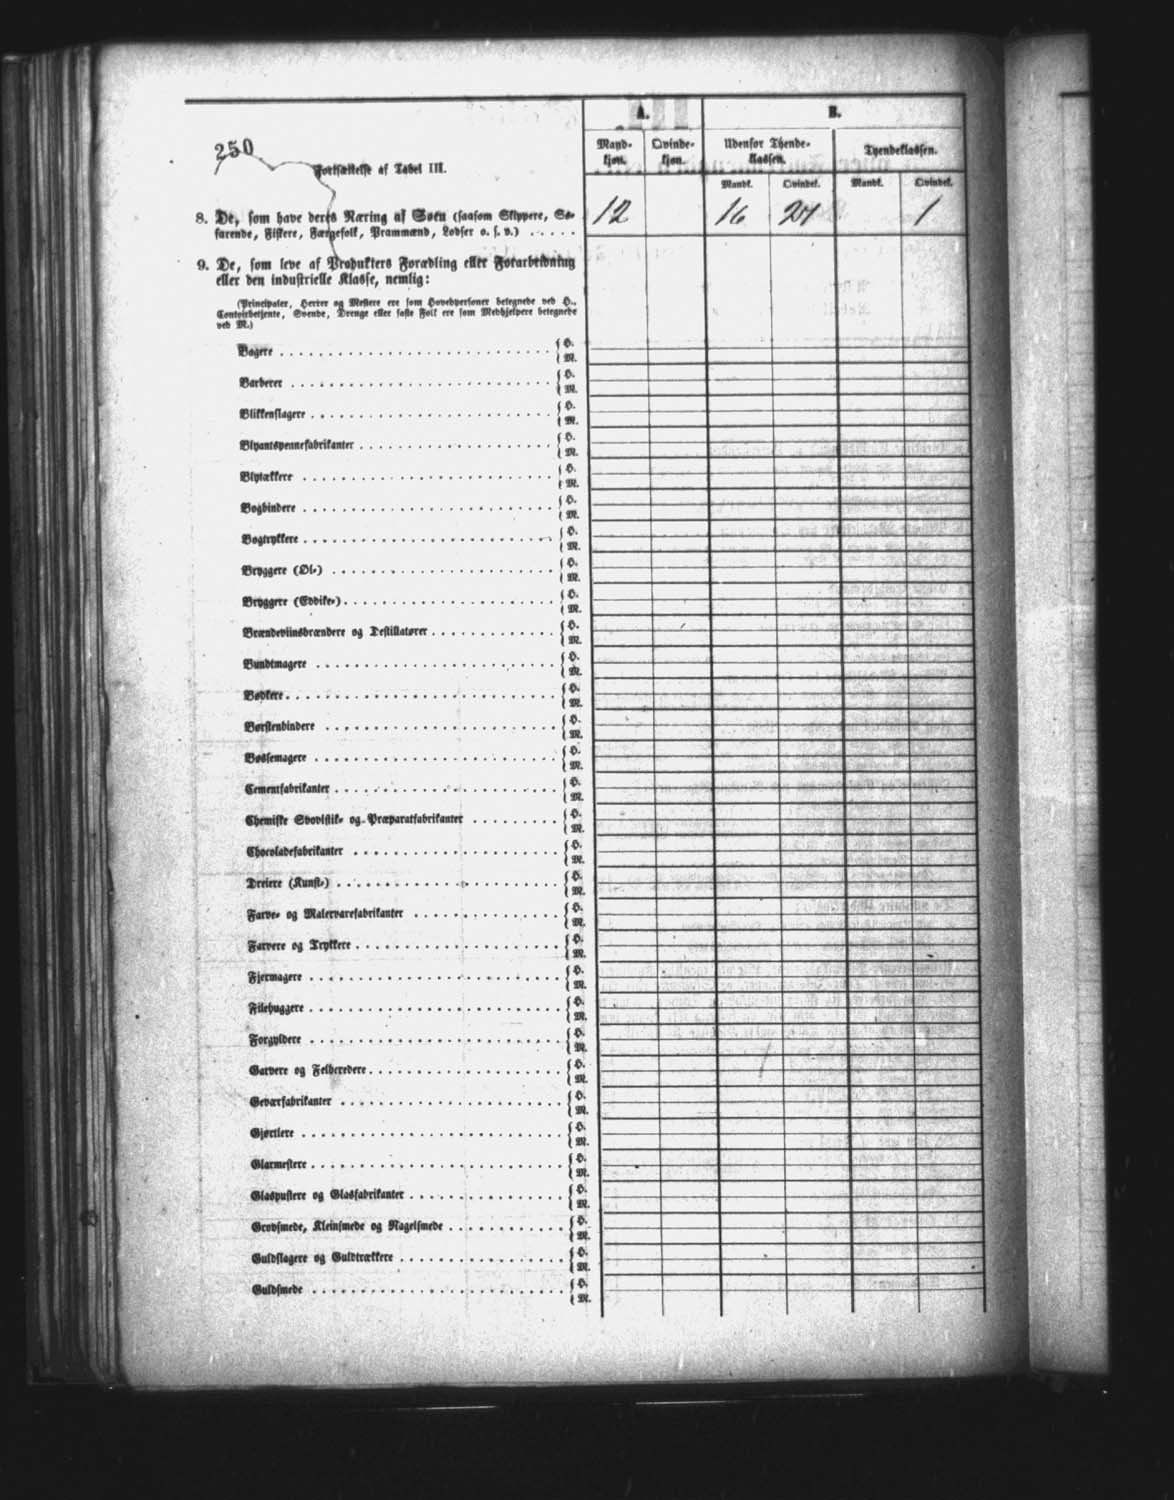 250
Fortsættelse af Tabel III.
A. B.
Mand-kjøn. Qvinde-kjøn. Udenfor Thende-klassen. Tyendeklassen.
Mandk. Qvindek. Mandk. Qvindek.
8. De, som have deres Næring af Søen (saasom Skippere, Sø- 12 16 24 1
farende, Fiskere, Færgefolk, Prammænd, Lodser o. s. v.) . . . . .
9. De, som leve af Produkters Forædling eller Forarbeidning
eller den industrielle Klasse, nemlig:
(Principaler, Herrer og Mestere ere som Hovedpersoner betegnede ved H.,
Contoirbetjente, Svende, Drenge eller faste Folk ere som Medhjelpere betegnede
ved M.)
Bagere { H. { M.
Barberer { H. { M.
Blikkenslagere { H. { M.
Blyantspennefabrikanter { H. { M.
Blytækkere { H. { M.
Bogbindere { H. { M.
Bogtrykkere { H. { M.
Bryggere (Øl-) { H. { M.
Bryggere (Eddike-) { H. { M.
Brændeviinsbrændere og Destillatører { H. { M.
Bundtmagere { H. { M.
Bødkere { H. { M.
Børstenbindere { H. { M.
Bøssemagere { H. { M.
Cementfabrikanter { H. { M.
Chemiske Svovlstik- og Præparatfabrikanter { H. { M.
Chocoladefabrikanter { H. { M.
Dreiere (Kunst-) { H. { M.
Farve- og Malervarefabrikanter { H. { M.
Farvere og Trykkere { H. { M.
Fjermagere { H. { M.
Filehuggere { H. { M.
Forgyldere { H. { M.
Garvere og Felberedere { H. { M.
Geværfabrikanter { H. { M.
Gjørtlere { H. { M.
Glarmestere { H. { M.
Glaspustere og Glasfabrikanter { H. { M.
Grovsmede, Kleinsmede og Nagelsmede { H. { M.
Guldslagere og Guldtrækkere { H. { M.
Guldsmede { H. { M.